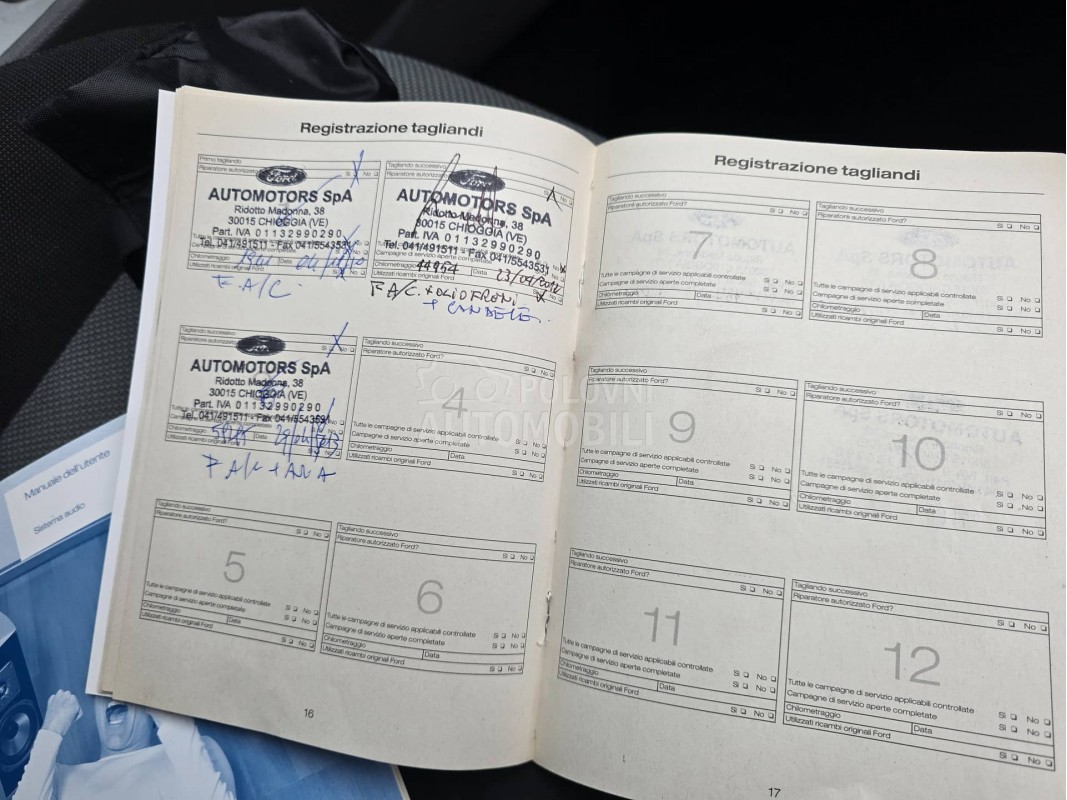 Registrazione tagliandi
Primo tagliando
Riparatore autorizzato
Sì No
Ford
AUTOMOTORS SpA
Ridotto Madonna, 38
30015 CHIOGGIA (VE)
Part. IVA 01132990290
Tel. 041/491511 - Fax 041/5543531
F.A/C.
Tagliando successivo
Riparatore autorizzato
Sì No
Ford
AUTOMOTORS SpA
Ridotto Madonna, 38
30015 CHIOGGIA (VE)
Part. IVA 01132990290
Tel. 041/491511 - Fax 041/5543531
Campagne di servizio aperte completate
Data
Utilizzati ricambi originali Ford
F A/C. + OLIO FRENI
+ CANDELE.
Tagliando successivo
Riparatore autorizzato
Sì No
Ford
AUTOMOTORS SpA
Ridotto Madonna, 38
30015 CHIOGGIA (VE)
Part. IVA 01132990290
Tel. 041/491511 - Fax 041/5543531
Chilometraggio
Data
Utilizzati ricambi originali Ford
F A/C + ARIA
Tagliando successivo
Riparatore autorizzato Ford?
Sì No
4
Tutte le campagne di servizio applicabili controllate
Campagne di servizio aperte completate
Sì No
Sì No
Chilometraggio
Data
Utilizzati ricambi originali Ford
Sì No
Tagliando successivo
Riparatore autorizzato Ford?
Sì No
5
Tutte le campagne di servizio applicabili controllate
Campagne di servizio aperte completate
Sì No
Sì No
Chilometraggio
Data
Utilizzati ricambi originali Ford
Sì No
Tagliando successivo
Riparatore autorizzato Ford?
Sì No
6
Tutte le campagne di servizio applicabili controllate
Campagne di servizio aperte completate
Sì No
Sì No
Chilometraggio
Data
Utilizzati ricambi originali Ford
Sì No
16
Registrazione tagliandi
Tagliando successivo
Riparatore autorizzato Ford?
Sì No
7
Tutte le campagne di servizio applicabili controllate
Campagne di servizio aperte completate
Sì No
Sì No
Chilometraggio
Data
Utilizzati ricambi originali Ford
Sì No
Tagliando successivo
Riparatore autorizzato Ford?
Sì No
8
Tutte le campagne di servizio applicabili controllate
Campagne di servizio aperte completate
Sì No
Sì No
Chilometraggio
Data
Utilizzati ricambi originali Ford
Sì No
Tagliando successivo
Riparatore autorizzato Ford?
Sì No
9
Tutte le campagne di servizio applicabili controllate
Campagne di servizio aperte completate
Sì No
Sì No
Chilometraggio
Data
Utilizzati ricambi originali Ford
Sì No
Tagliando successivo
Riparatore autorizzato Ford?
Sì No
10
Tutte le campagne di servizio applicabili controllate
Campagne di servizio aperte completate
Sì No
Sì No
Chilometraggio
Data
Utilizzati ricambi originali Ford
Sì No
Tagliando successivo
Riparatore autorizzato Ford?
Sì No
11
Tutte le campagne di servizio applicabili controllate
Campagne di servizio aperte completate
Sì No
Sì No
Chilometraggio
Data
Utilizzati ricambi originali Ford
Sì No
Tagliando successivo
Riparatore autorizzato Ford?
Sì No
12
Tutte le campagne di servizio applicabili controllate
Campagne di servizio aperte completate
Sì No
Sì No
Chilometraggio
Data
Utilizzati ricambi originali Ford
Sì No
17
Manuale dell'utente
Sistema audio
POLOVNI
AUTOMOBILI